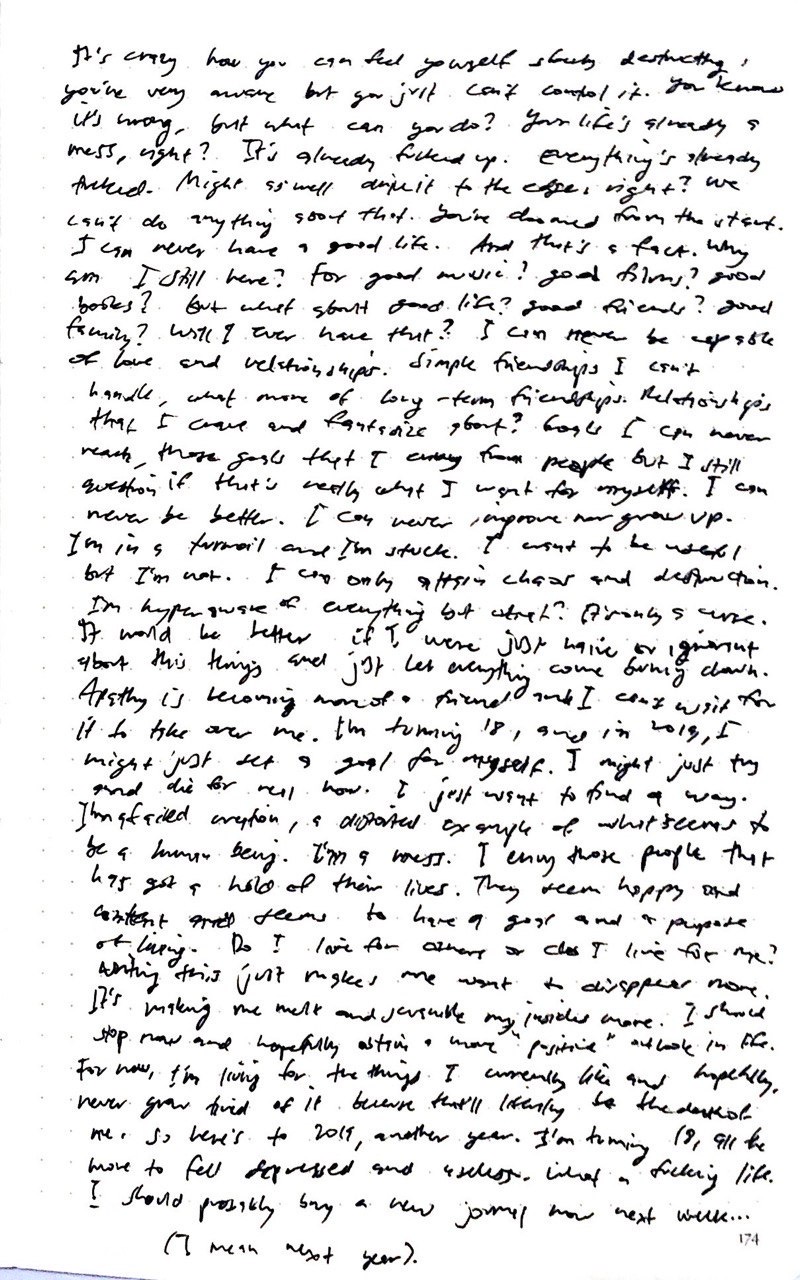 It's crazy how you can feel yourself slowly destructing,
you're very aware but you just can't control it. You know
it's wrong, but what can you do? Your life's already a
mess, right? It's already fucked up. Everything's already
fucked. Might as well drive it to the edge, right? We
can't do anything about that. You're doomed from the start.
I can never have a good life. And that's a fact. Why
am I still here? For good music? good films? good
books? But what about good life? good friends? good
family? Will I ever have that? I can never be capable
of love and relationships. Simple friendships I can't
handle, what more of long-term friendships. Relationships
that I crave and fantasize about? Goals I can never
reach, those goals that I envy from people but I still
question if that's really what I want for myself. I can
never be better. I can never improve nor grow up.
I'm in a turmoil and I'm stuck. I want to be useful
but I'm not. I can only attain chaos and destruction.
I'm hyperaware of everything but what? It's only a curse.
It would be better if I were just naive or ignorant
about this things and just let everything come burning down.
Apathy is becoming more of a friend and I can't wait for
it to take over me. I'm turning 18, and in 2019, I
might just set a goal for myself. I might just try
and die for real now. I just want to find a way.
I'm a failed creation, a distorted example of what seems to
be a human being. I'm a mess. I envy those people that
has got a hold of their lives. They seem happy and
content and seems to have a goal and a purpose
of living. Do I live for others or do I live for me?
Writing this just makes me want to disappear more.
It's making me melt and scramble my insides more. I should
stop now and hopefully attain a more "positive" outlook in life.
For now, I'm living for the things I currently like and hopefully,
never grow tired of it because that'll literally be the death of
me. So here's to 2019, another year. I'm turning 18, all the
more to fell depressed and useless. What a fucking life.
I should probably buy a new journal now next week...
(I mean next year).
174